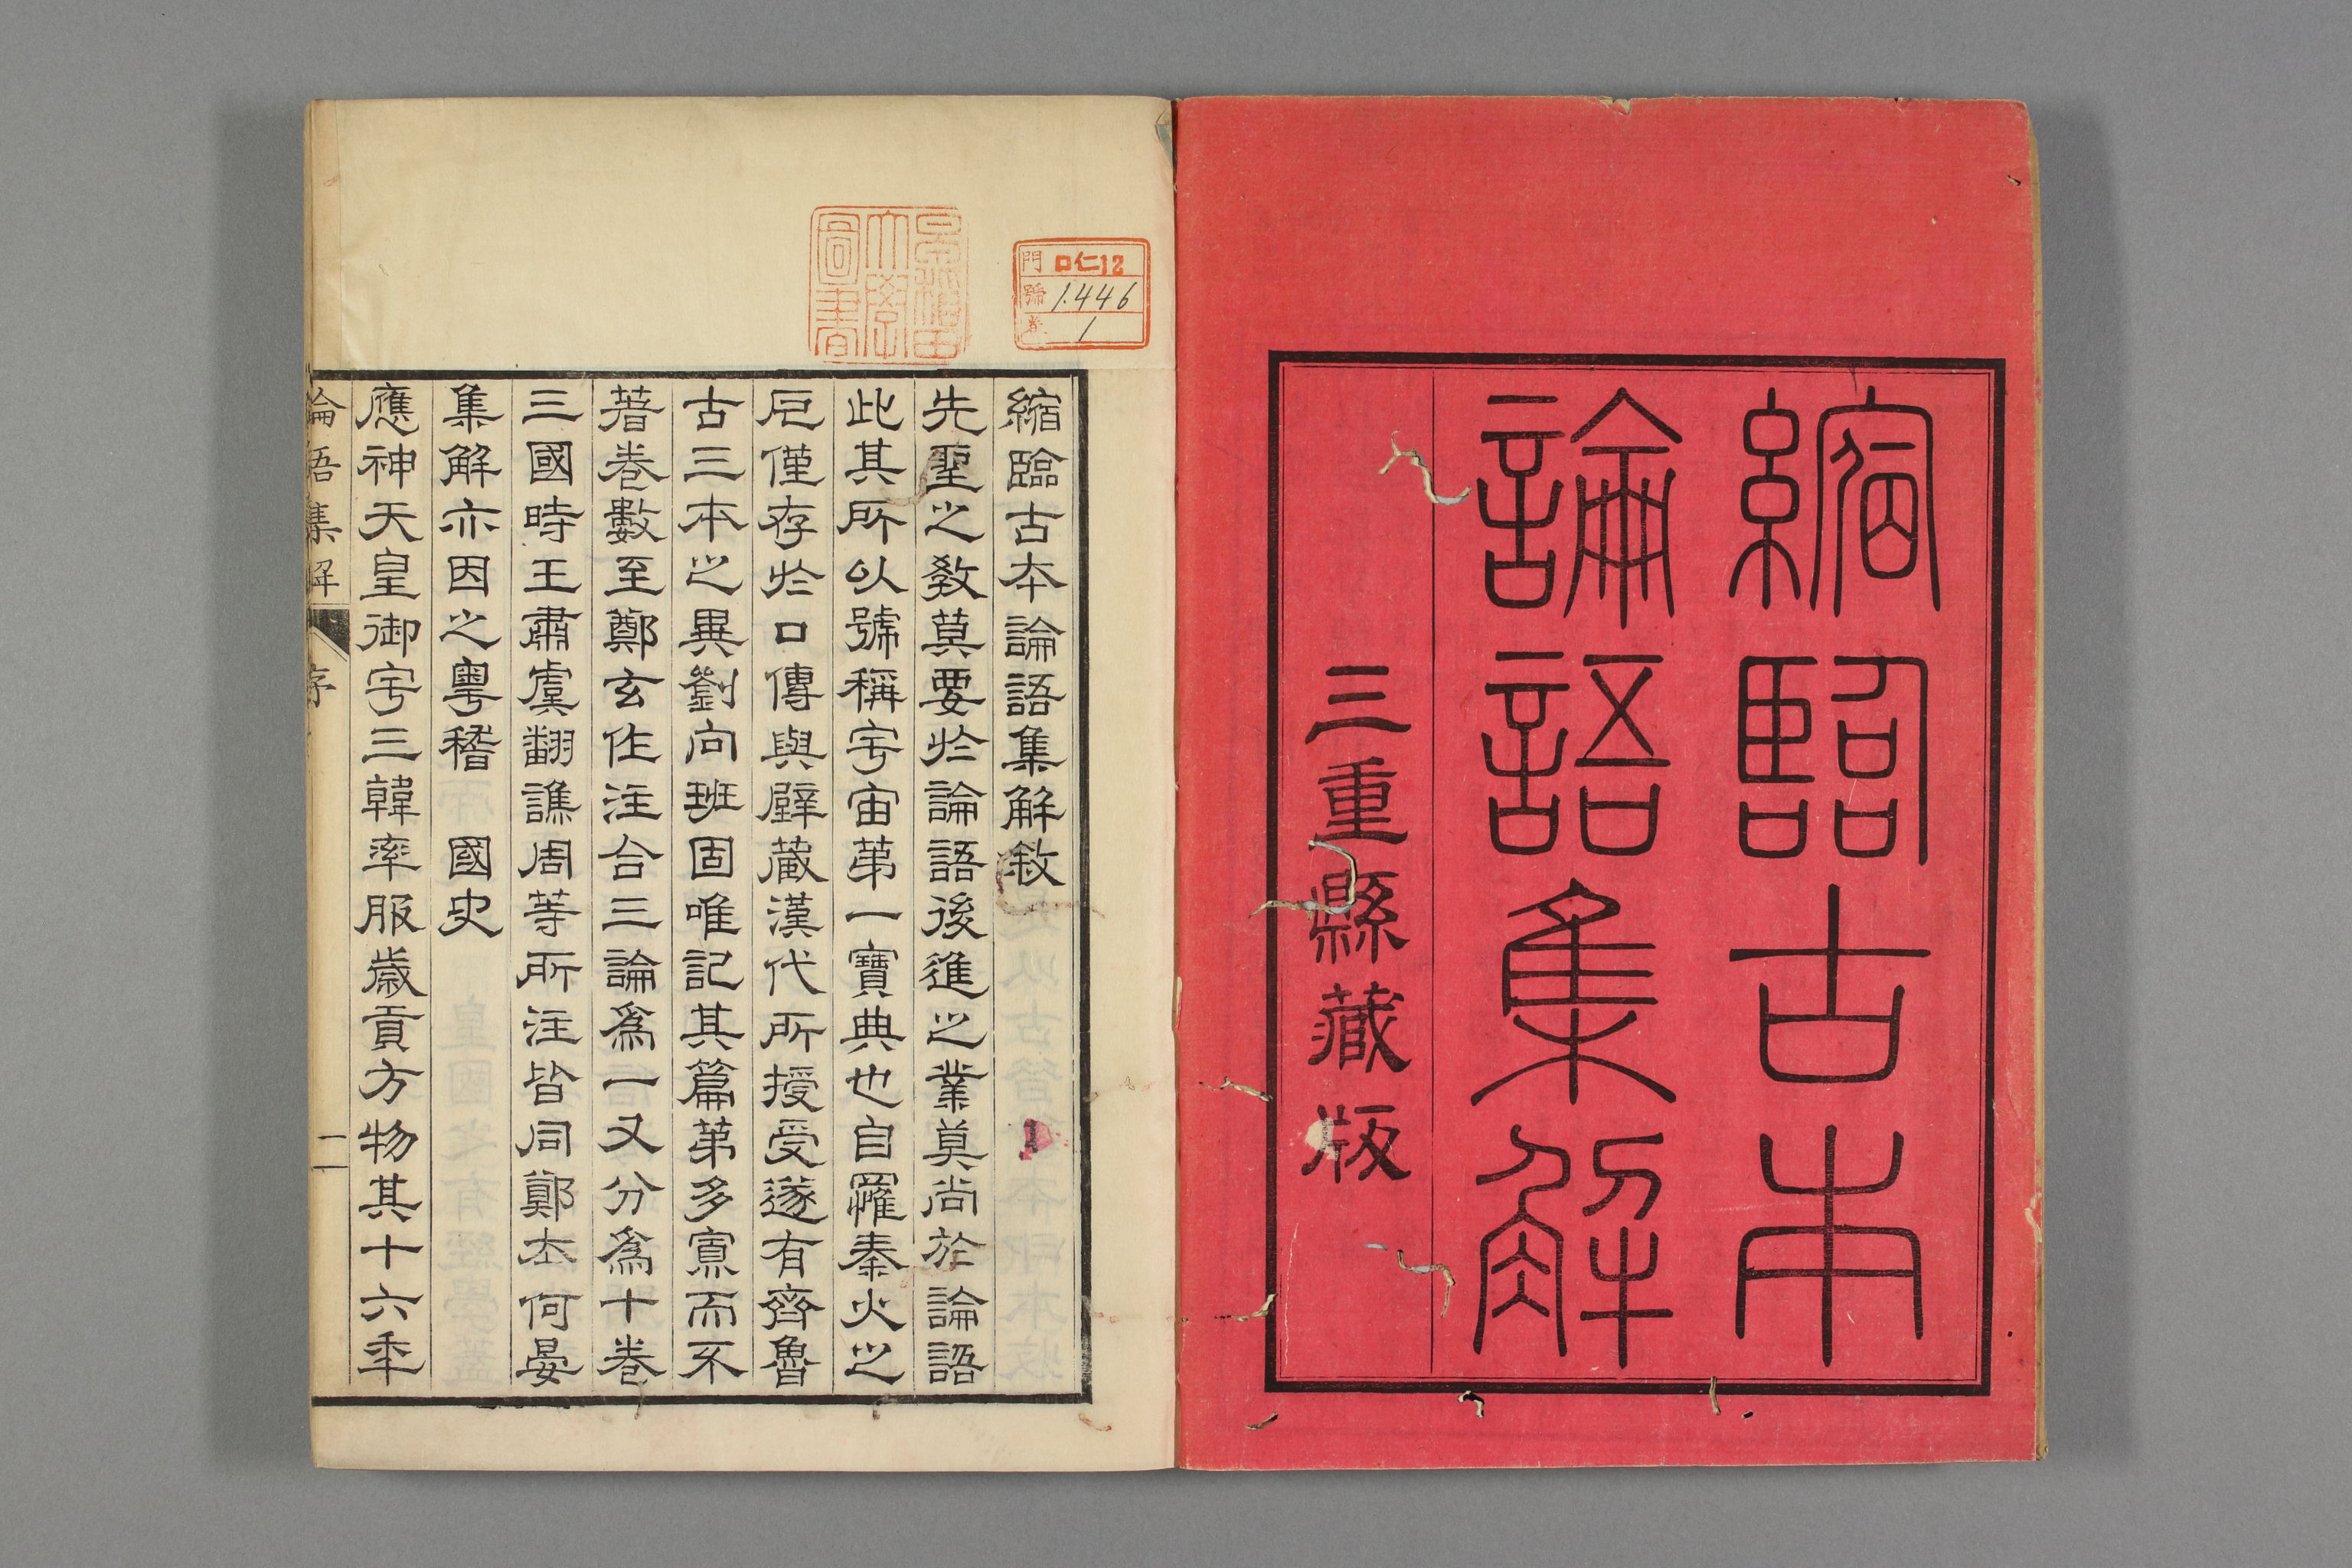 縮臨古本
論語集解
三重縣藏版
早稻田
大學
圖書
門 口仁12
號 1.446
卷 1
縮臨古本論語集解敘
先聖之敎莫要於論語後進之業莫尚於論語
此其所以號稱宇宙第一寶典也自罹秦火之
厄僅存於口傳與壁藏漢代所授受遂有齊魯
古三本之異劉向班固唯記其篇第多寡而不
著卷數至鄭玄作注合三論爲一又分爲十卷
三國時王肅虞翻譙周等所注皆同鄭本何晏
集解亦因之粵稽 國史
應神天皇御宇三韓率服歲貢方物其十六年
論語集解 序 一